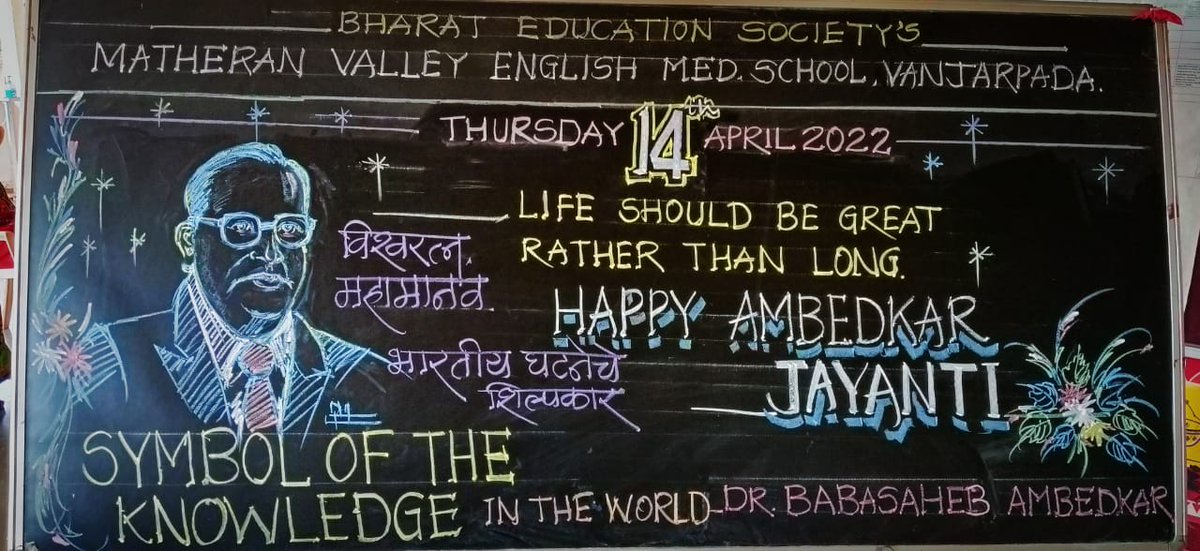 BHARAT EDUCATION SOCIETY'S
MATHERAN VALLEY ENGLISH MED. SCHOOL, VANJARPADA.
THURSDAY 14th APRIL 2022
LIFE SHOULD BE GREAT
RATHER THAN LONG.
विश्वरत्न,
महामानव.
HAPPY AMBEDKAR
JAYANTI
भारतीय घटनेचे
शिल्पकार
SYMBOL OF THE
KNOWLEDGE IN THE WORLD-DR. BABASAHEB AMBEDKAR